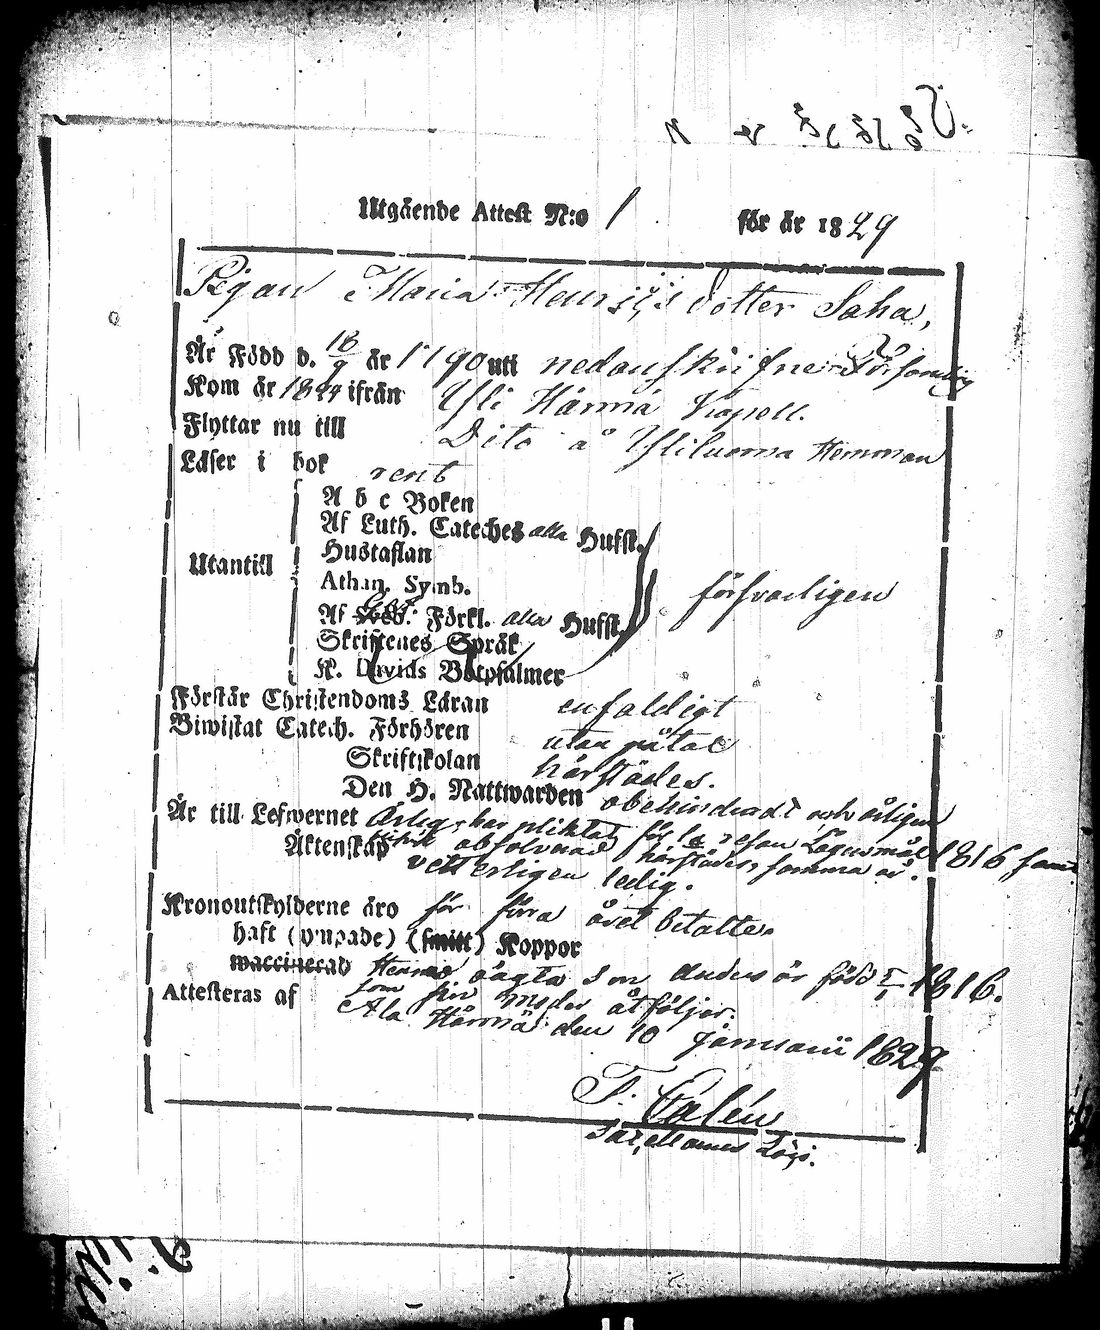 Utgående Attest N:o 1 för år 1829
Pigan Maria Henricsdotter Saha,
Är Född d. 18/9 år 1790 uti nedanskrifne Församling
Kom år 1824 ifrån Ylihärmä Kapell.
Flyttar nu till Dito å Yliluoma Hemman
Läser i bok rent
Utantill
A b c Boken
Af Luth. Cateches alla Hufst.
Hustaflan
Athan. Symb.
Af Förkl. alla Hufst.
försvarligen
Skriftenes Språk
K. Davids Botpsalmer
Förstår Christendoms Läran enfaldigt
Biwistat Catech. Förhören utan påtal
Skriftskolan härstädes.
Den H. Nattwarden obehindradt och årligen
Är till Lefwernet Ärlig, har pliktat för 1a resan Lägersmål 1816 samt
absolverad härstädes samma år.
Äktenskap vetterligen ledig.
Kronoutskylderne äro för förra året betalte.
haft (ympade) (smitt) Koppor
waccinerad Hennes oägta Son är född 1816.
som sin moder åtföljer.
Attesteras af Ala Härmä den 10 Januarii 1829